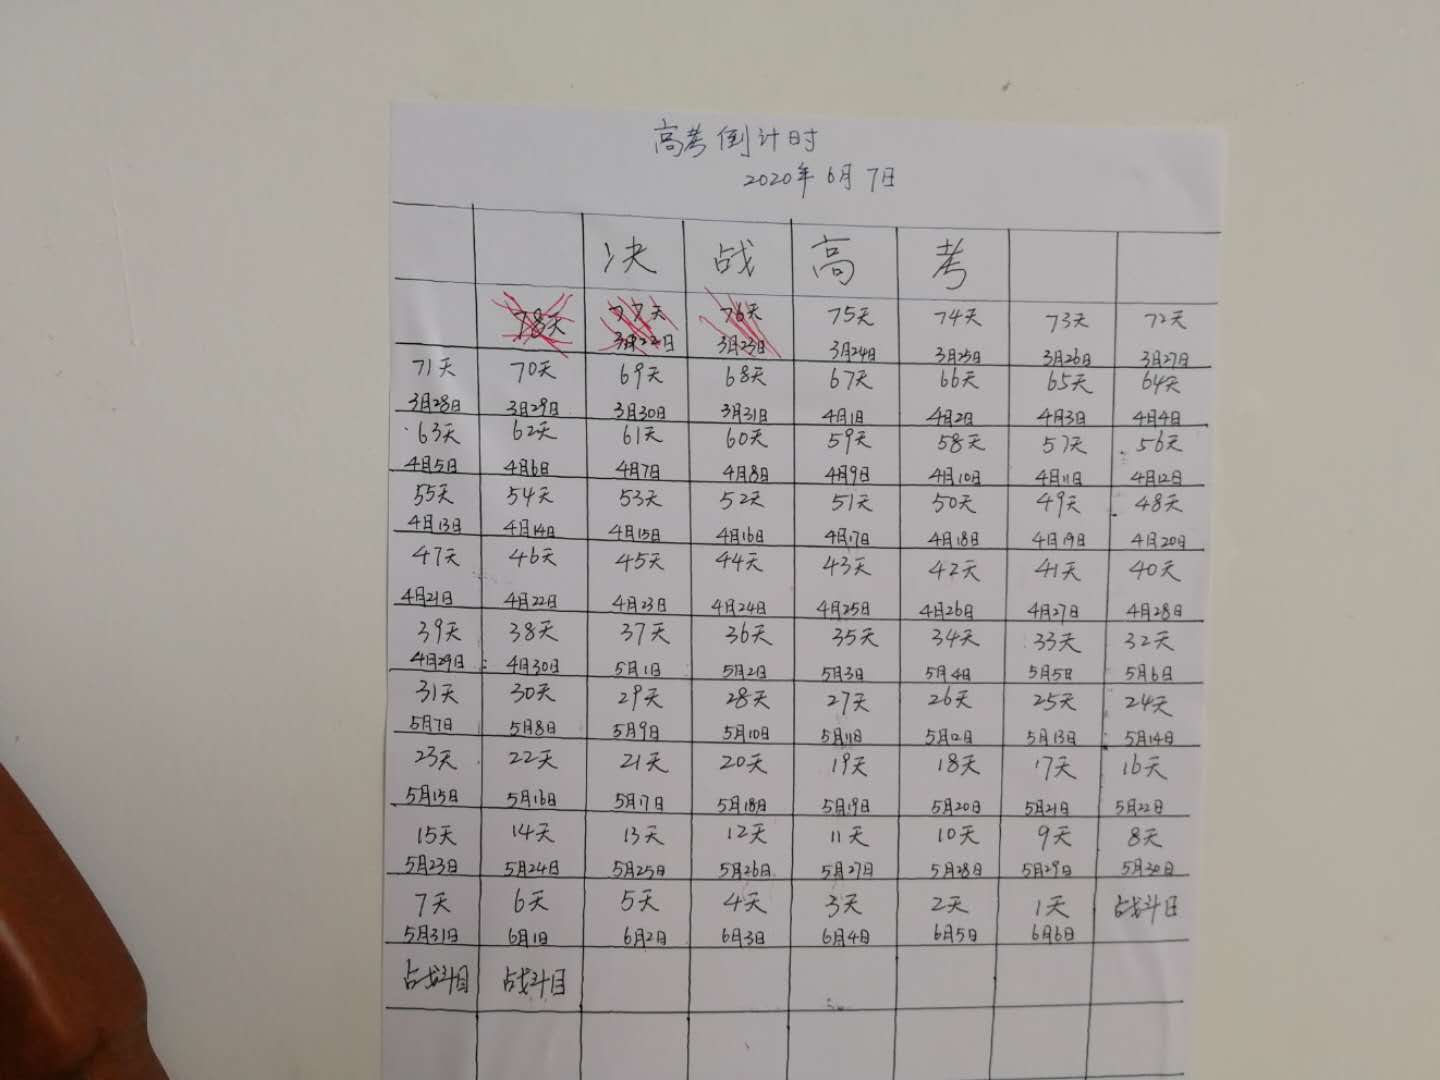 高考倒计时
2020年6月7日
决 战 高 考
78天 77天 76天 75天 74天 73天 72天
3月22日 3月23日 3月24日 3月25日 3月26日 3月27日
71天 70天 69天 68天 67天 66天 65天 64天
3月28日 3月29日 3月30日 3月31日 4月1日 4月2日 4月3日 4月4日
63天 62天 61天 60天 59天 58天 57天 56天
4月5日 4月6日 4月7日 4月8日 4月9日 4月10日 4月11日 4月12日
55天 54天 53天 52天 51天 50天 49天 48天
4月13日 4月14日 4月15日 4月16日 4月17日 4月18日 4月19日 4月20日
47天 46天 45天 44天 43天 42天 41天 40天
4月21日 4月22日 4月23日 4月24日 4月25日 4月26日 4月27日 4月28日
39天 38天 37天 36天 35天 34天 33天 32天
4月29日 4月30日 5月1日 5月2日 5月3日 5月4日 5月5日 5月6日
31天 30天 29天 28天 27天 26天 25天 24天
5月7日 5月8日 5月9日 5月10日 5月11日 5月12日 5月13日 5月14日
23天 22天 21天 20天 19天 18天 17天 16天
5月15日 5月16日 5月17日 5月18日 5月19日 5月20日 5月21日 5月22日
15天 14天 13天 12天 11天 10天 9天 8天
5月23日 5月24日 5月25日 5月26日 5月27日 5月28日 5月29日 5月30日
7天 6天 5天 4天 3天 2天 1天 战斗日
5月31日 6月1日 6月2日 6月3日 6月4日 6月5日 6月6日
战斗日 战斗日